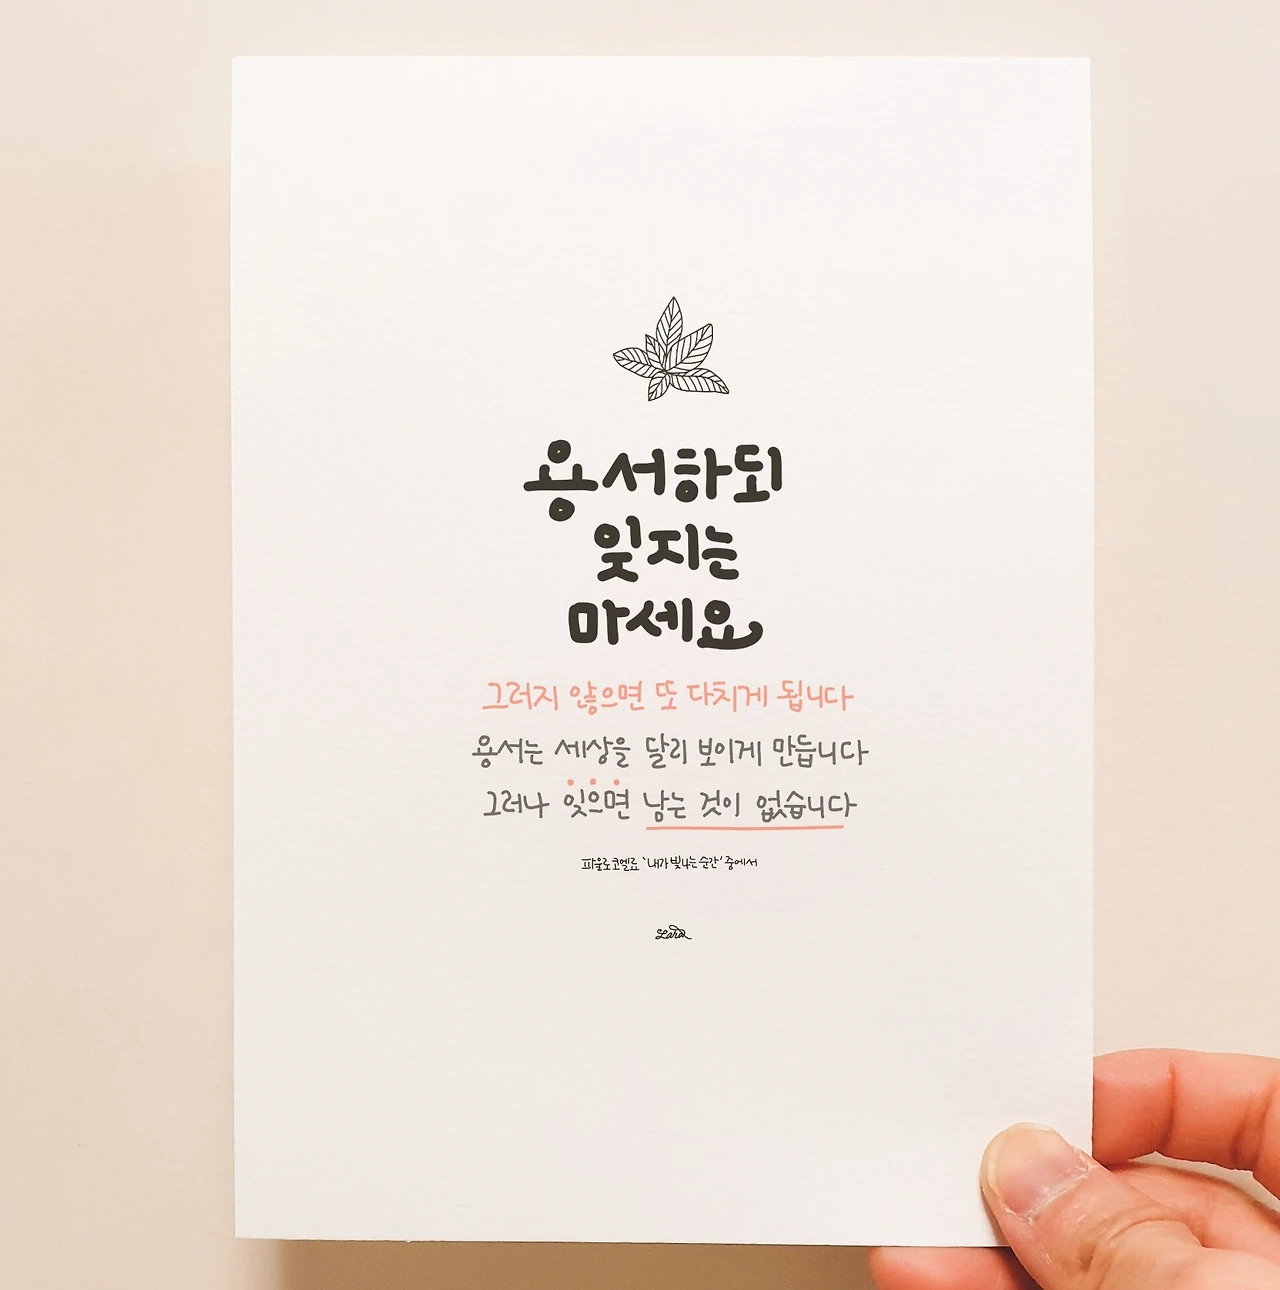 용서하되
잊지는
마세요
그러지 않으면 또 다치게 됩니다
용서는 세상을 달리 보이게 만듭니다
그러나 잊으면 남는 것이 없습니다
파울로코엘료 '내가빛나는순간' 중에서
Lara